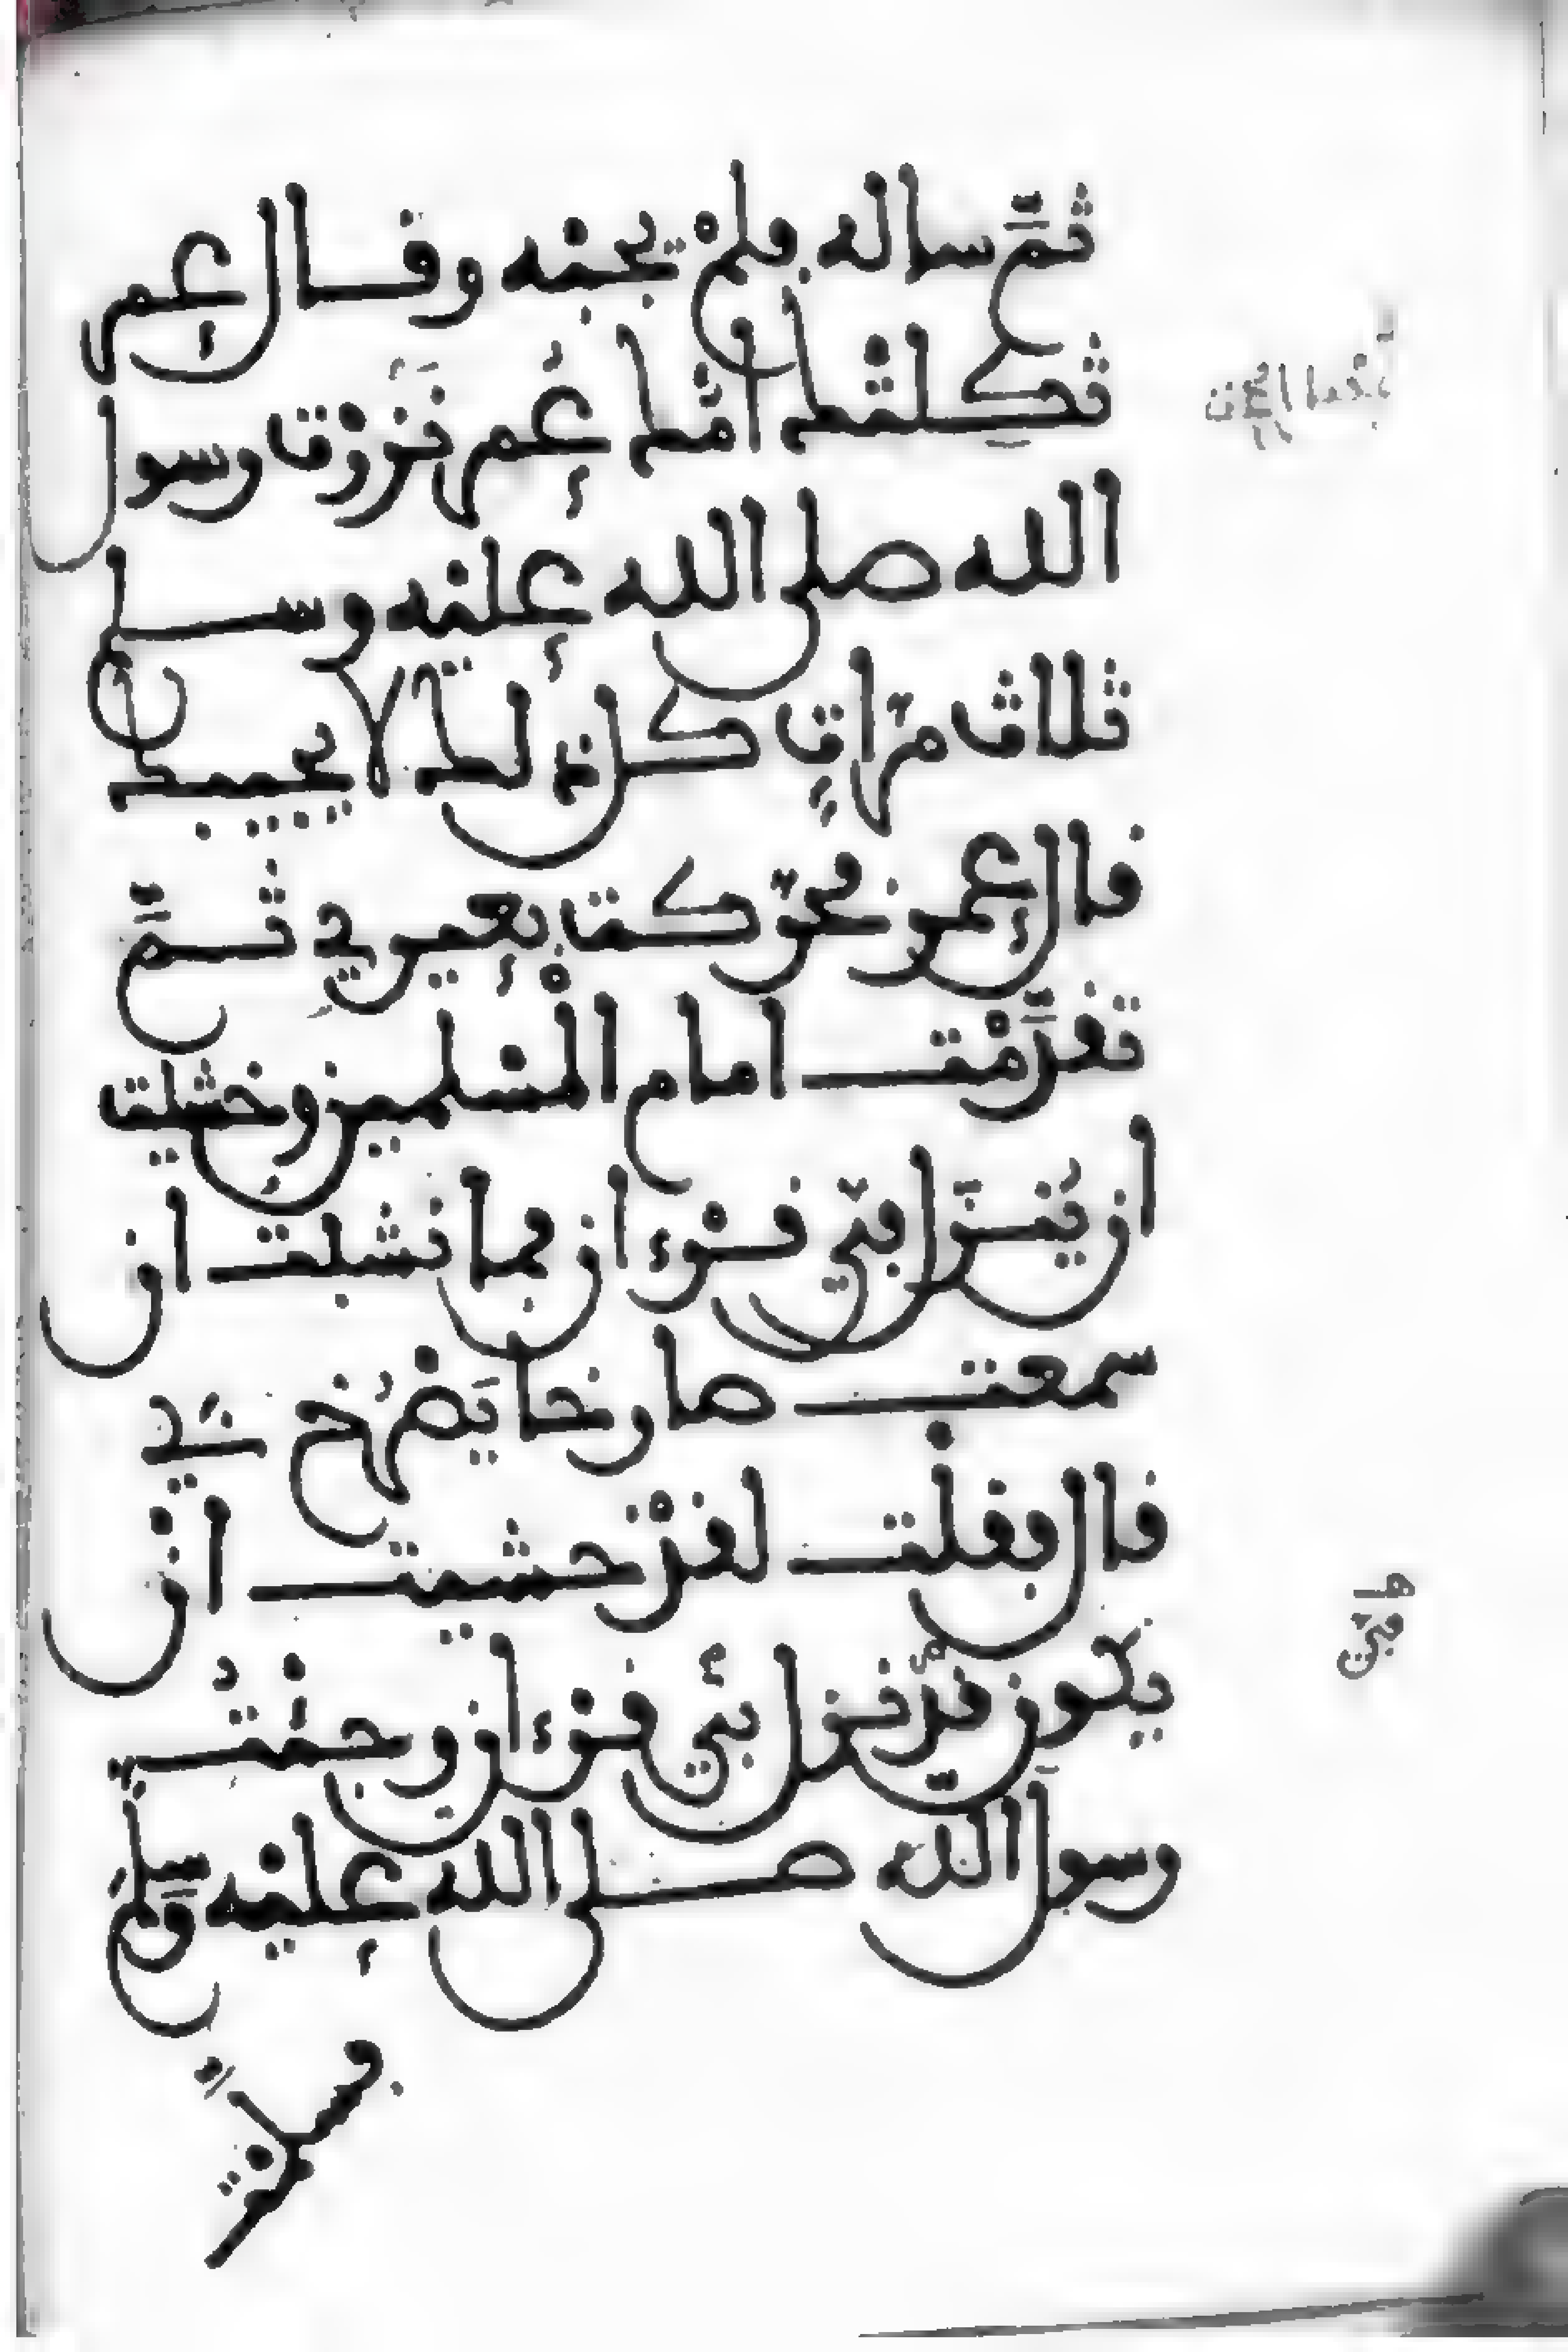 ثمَّ ساله فلمْ يجبْه وقال عمر
ثكلتْك امُّك عُمر نَزَرْتَ رسول
الله صلى الله عليْه وسلم
ثلاث مرّاتٍ كل ذلك لا يجيبك
قال عمر فحرّكت بعيري ثمَّ
تقدَّمْت امام الْمسْلمين وخشيت
ان يُنَزَّل فيّ قرْءان فما نشبت ان
سمعت صارخا يَصْرُخ بي
قال فقلْت لقدْ خشيت ان
يكون قدْ نزل فيّ قرْءان وجئْتُ
رسول الله صلى الله عليْه وَسلم
فسلمْت
فيَّ